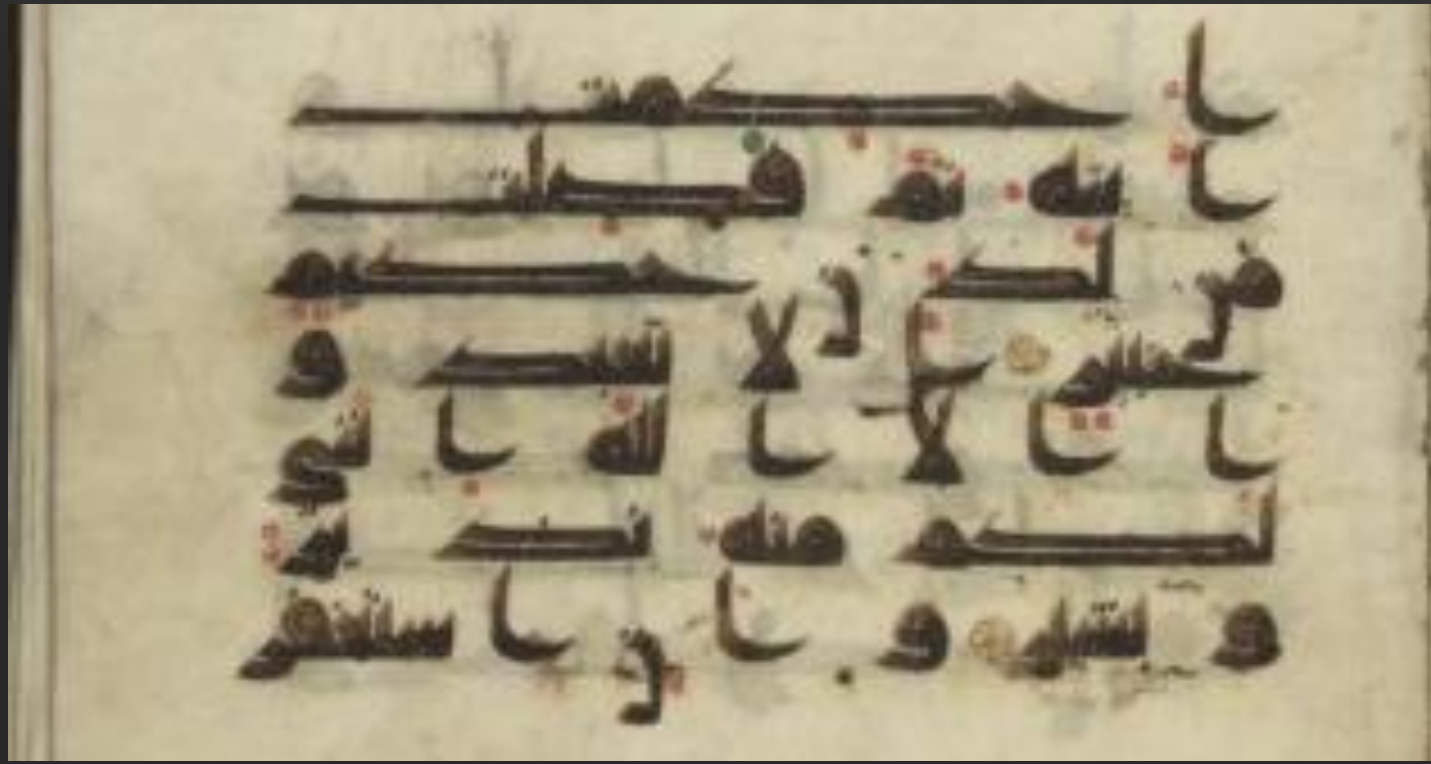 احكمت
ايته ثم فصلت
من لدن حكيم
خبير الا تعبدو
ا الا الله انني
لكم منه نذير
وبشير وان استغفر